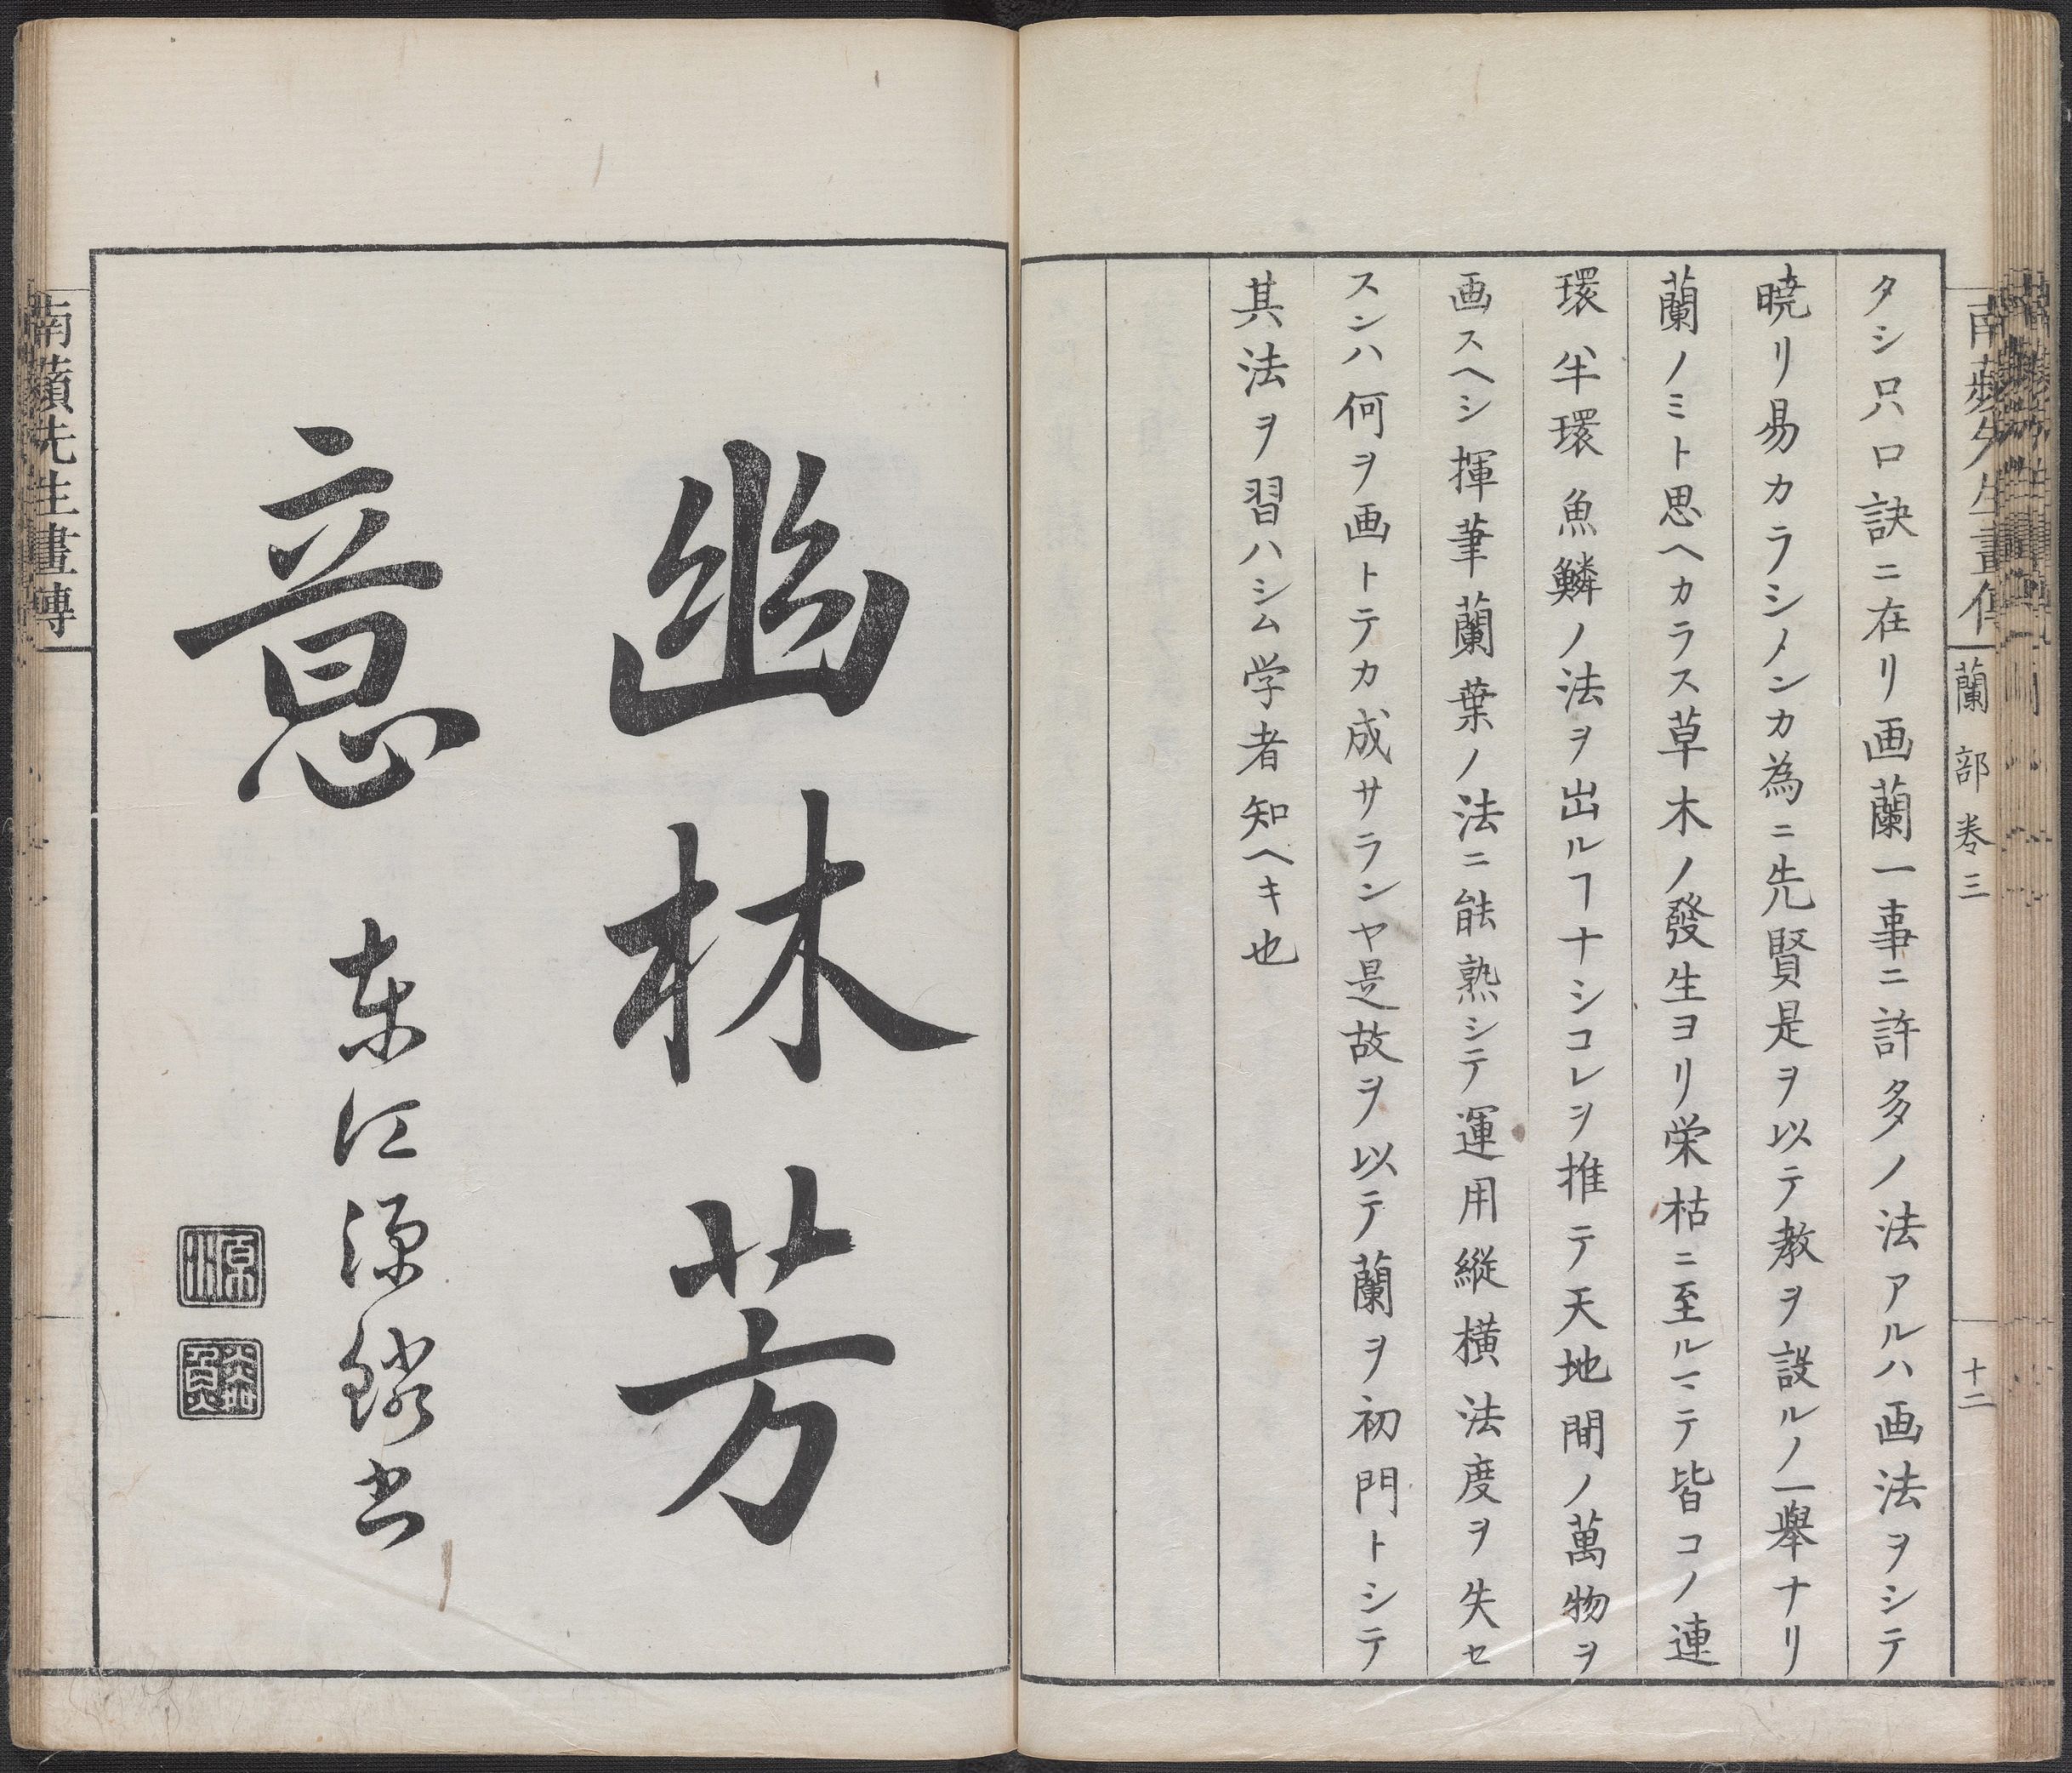 タシ只口訣ニ在リ画蘭一事ニ許多ノ法アルハ画法ヲシテ
暁リ易カラシメンカ為ニ先賢是ヲ以テ教ヲ設ルノ一舉ナリ
蘭ノミト思ヘカラス草木ノ發生ヨリ栄枯ニ至ルマテ皆コノ連
環半環魚鱗ノ法ヲ出ルヿナシコレヲ推テ天地間ノ萬物ヲ
画スヘシ揮筆蘭葉ノ法ニ能熟シテ運用縱横法度ヲ失セ
スンハ何ヲ画トテカ成サランヤ是故ヲ以テ蘭ヲ初門トシテ
其法ヲ習ハシム学者知ヘキ也
蘭部巻三
十二
幽林芳
意
東江源鱗書
南蘋先生畫傳